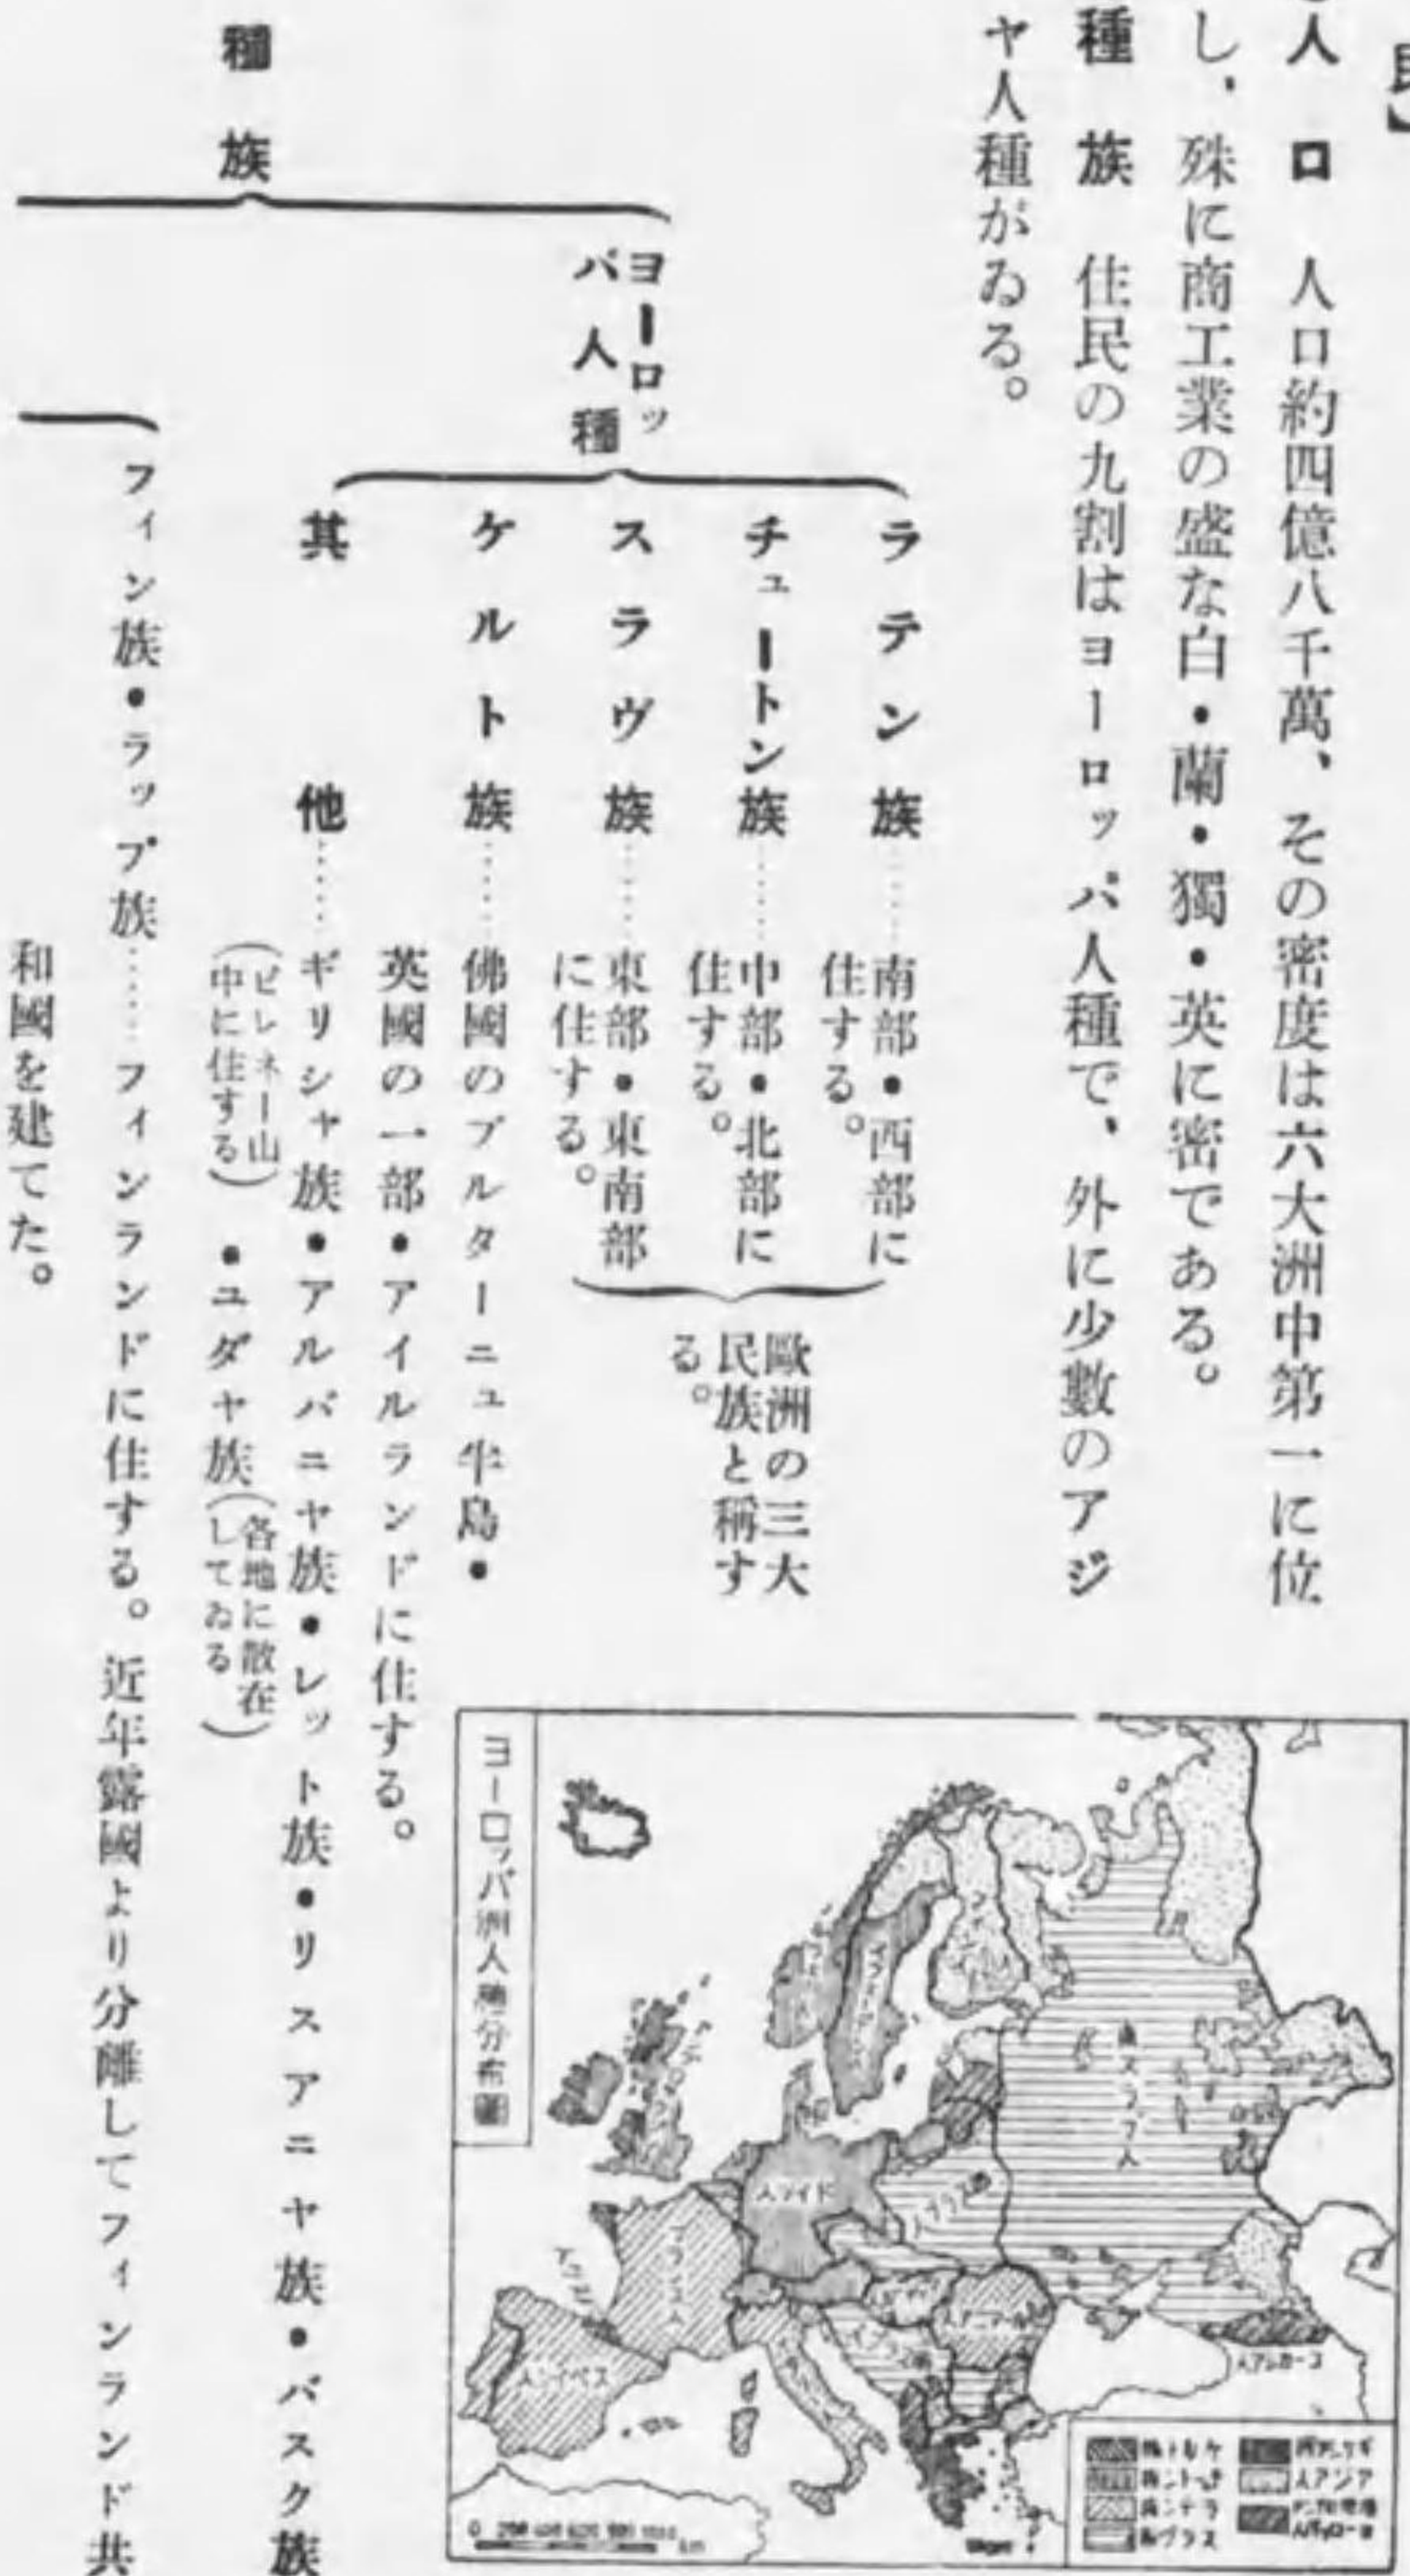 民】
人口　人口約四億八千萬、その密度は六大洲中第一に位
し、殊に商工業の盛な白・蘭・獨・英に密である。
種族　住民の九割はヨーロッパ人種で、外に少數のアジ
ヤ人種がゐる。
種族
ヨーロッ
パ人種
ラテン族……南部・西部に
住する。
チュートン族……中部・北部に
住する。
スラヴ族……東部・東南部
に住する。
歐洲の三大
民族と稱す
る。
ケルト族……佛國のブルターニュ半島・
英國の一部・アイルランドに住する。
其他……ギリシャ族・アルバニヤ族・レット族・リスアニヤ族・バスク族
(ピレネー山
中に住する)・ユダヤ族(各地に散在
してゐる)
フィン族・ラップ族……フィンランドに住する。近年露國より分離してフィンランド共
和國を建てた。
ヨーロッパ洲人種分布圖
スラブ人
人ツイド
フランス人
人ンイペス
km